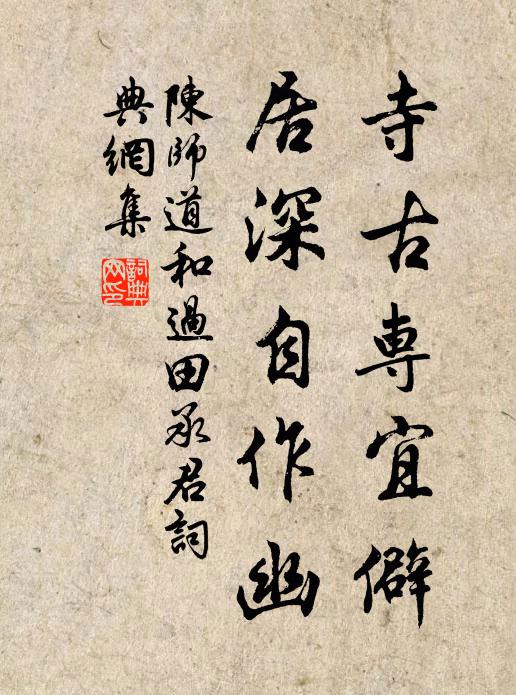 寺古専宜僻
居深自作幽
陳師道和過田承君詞
典網集
詞典
网印